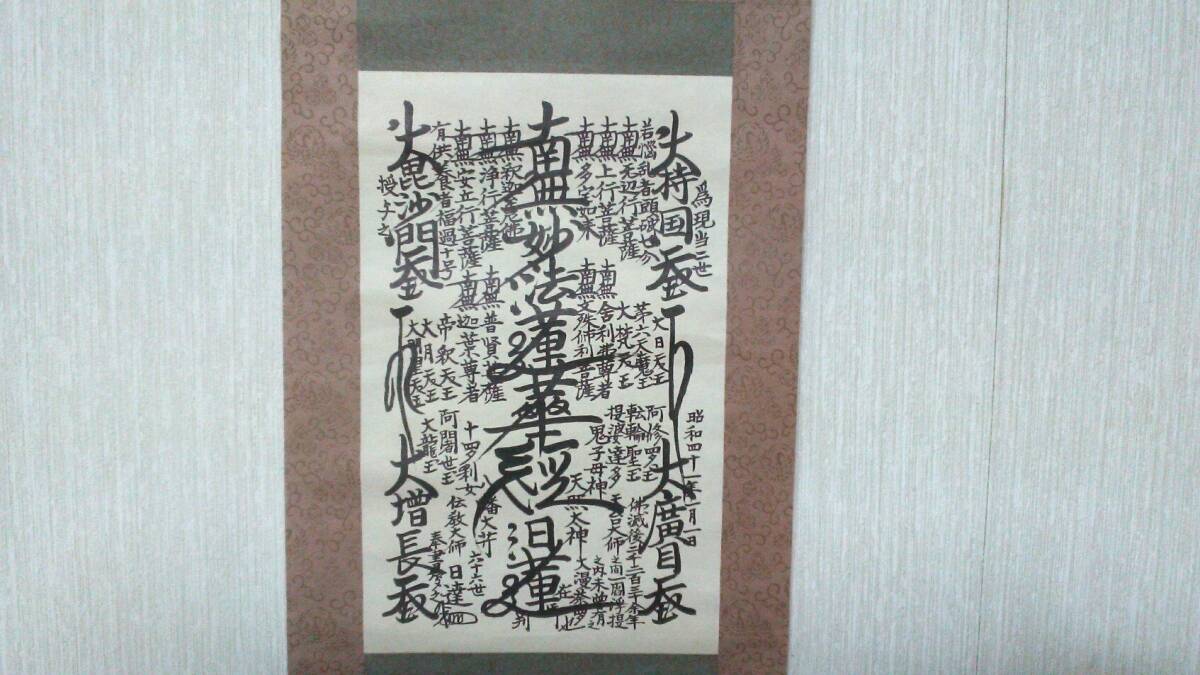 爲現当二世
大持国天王
大廣目天王
昭和四十一年一月一日
若悩乱者頭破七分
南無无辺行菩薩
南無上行菩薩
南無多宝如来
大日天王
第六天魔王
大梵天王
南無舎利弗尊者
南無文殊師利菩薩
阿修羅王
転輪聖王
提婆達多
鬼子母神
天照大神
天台大師
佛滅後二千二百三十余年
之間一閻浮提
之内未曽有之
大漫荼羅也
南無妙法蓮華経
日蓮
在
判
南無釈迦牟尼佛
南無浄行菩薩
南無安立行菩薩
有供養者福過十号
南無普賢菩薩
南無迦葉尊者
帝釈天王
大月天王
大明星天王
十羅刹女
阿闍世王
大龍王
八幡大菩薩
伝教大師
六十六世
日達
奉書写之
大毘沙門天王
大増長天王
授与之